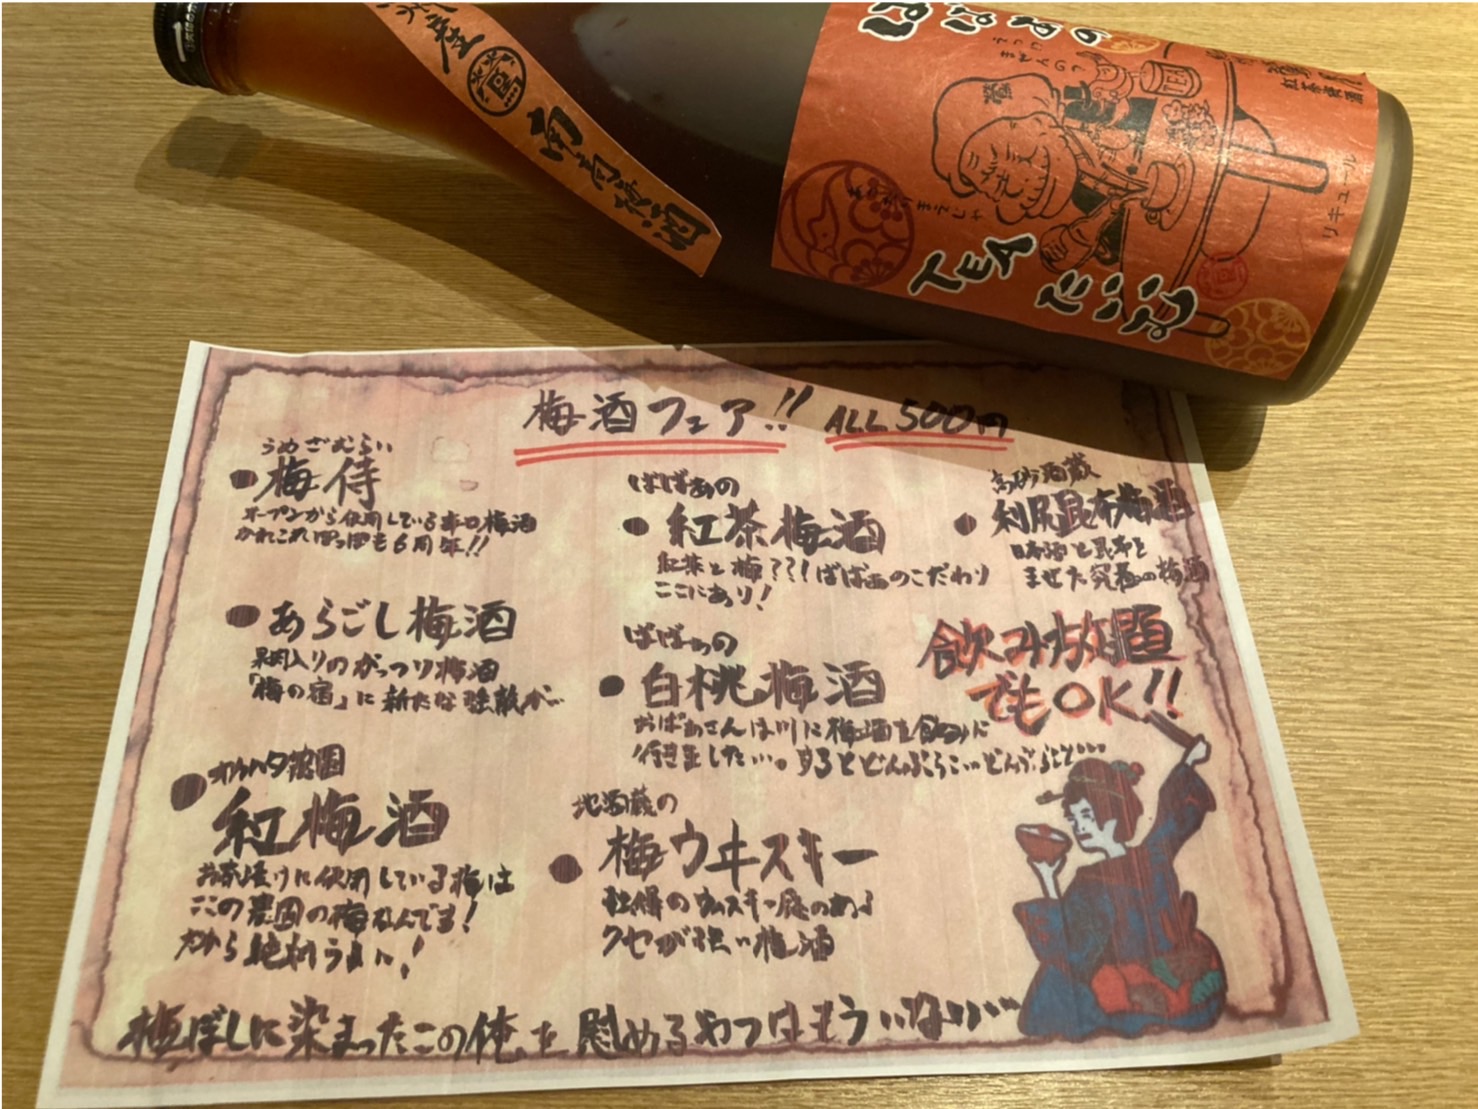 ばばぁの
紅茶梅酒
リキュール
TEA たいむ
梅酒フェア!! ALL 500円
うめざむらい
●梅侍
オープンから使用している辛口梅酒
かれこれぽっぽも6周年!!
●あらごし梅酒
果肉入りのがっつり梅酒
「梅の宿」に新たな強敵が…
●オカハタ農園
紅梅酒
お茶漬けに使用している梅は
この農園の梅なんです!
だから絶対うまい!
ばばぁの
●紅茶梅酒
紅茶と梅???ばばあのこだわり
ここにあり!
ばばぁの
●白桃梅酒
おばあさんは川に梅酒を
行きました…。するとどんぶらこ…どんぶらこと…
地酒蔵の
●梅ウヰスキー
独特のウィスキー感のある
クセが強い梅酒
高砂酒蔵
●利尻昆布梅酒
日本酒と昆布を
ませた究極の梅酒
飲み放題
でもOK!!
梅ぼしに染まったこの俺を慰めるやつはもういない